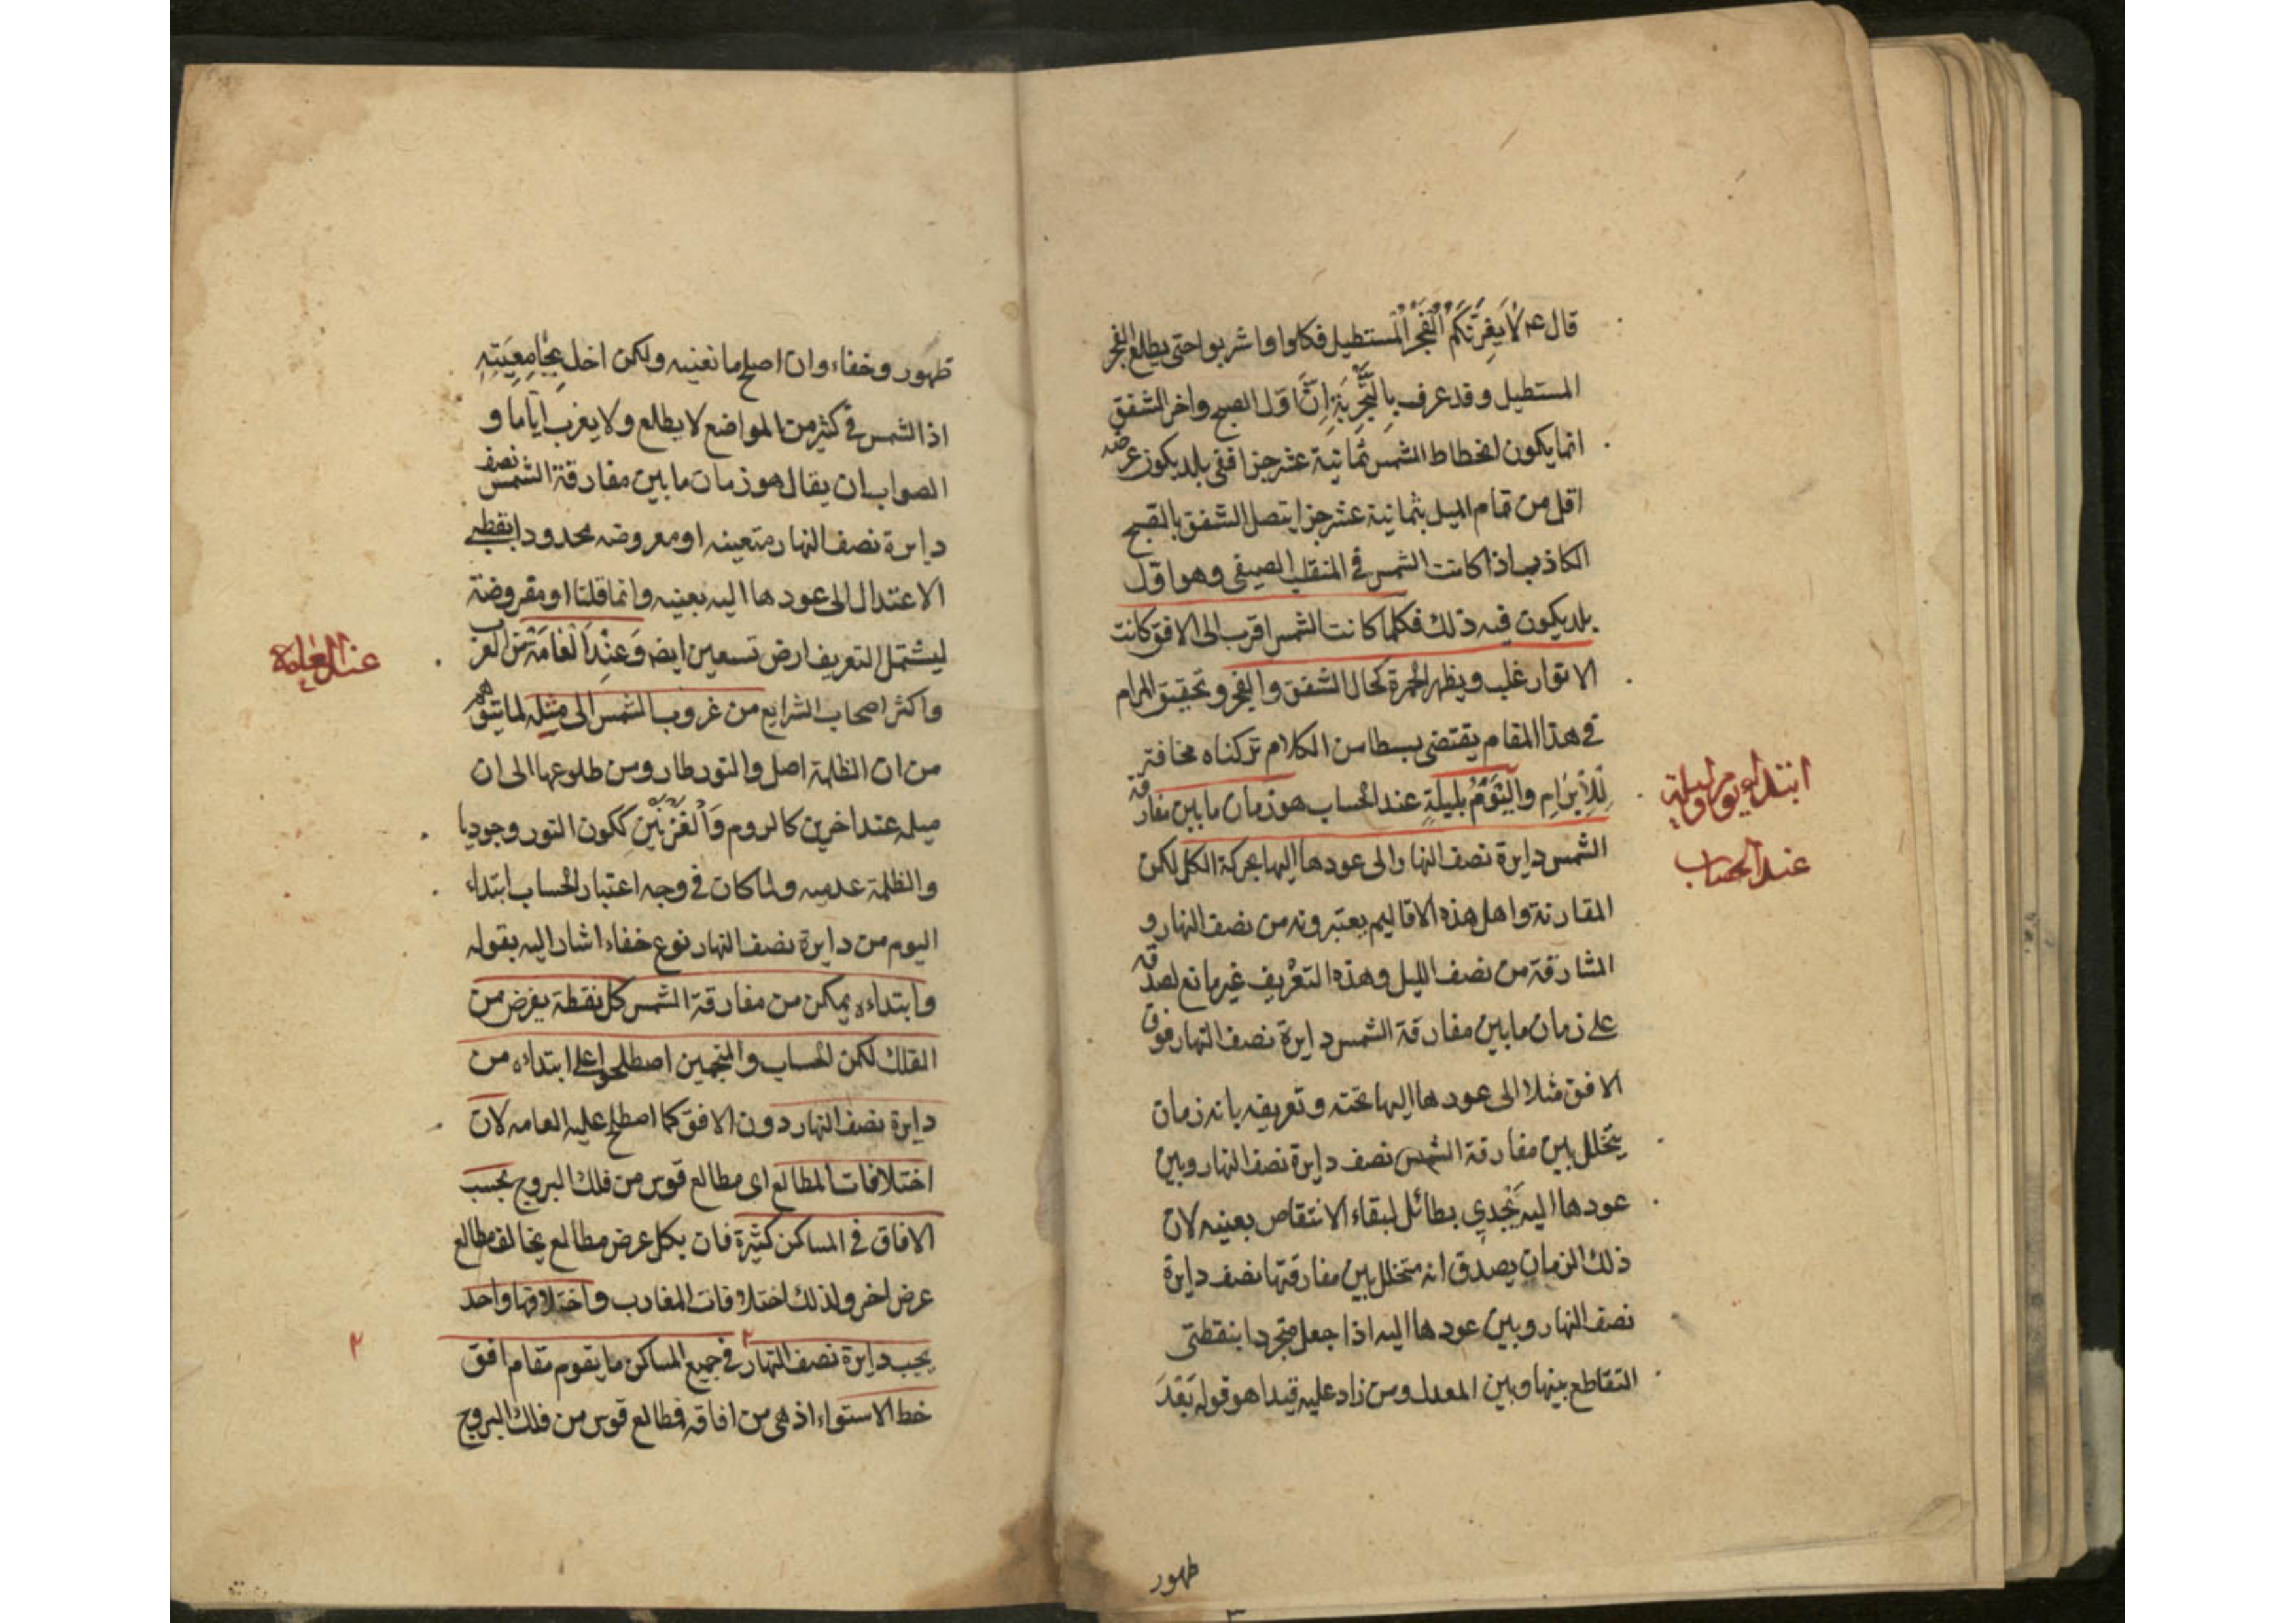 قال ع م لا يغرنكم الفجر المستطيل فكلوا واشربوا حتى يطلع الفجر
المستطيل وقد عرف بالتجربة ان اول الصبح واخر الشفق
انما يكون لانحطاط الشمس ثمانية عشر جزا ففى بلد يكون عرضه
اقل من تمام الميل بثمانية عشر جزا يتصل الشفق بالصبح
الكاذب اذا كانت الشمس فى المنقلب الصيفى وهو اول
بلد يكون فيه ذلك فكلما كانت الشمس اقرب الى الافق كانت
الانوار غلب ويظهر الحمرة كحال الشفق والفجر وتحقيق المرام
فى هذا المقام يقتضى بسطا من الكلام تركناه مخافة
للابرام واليوم بليلة عند الحساب هو زمان ما بين مفارقة
الشمس دايرة نصف النهار الى عودها اليها بحركة الكل لكن
المقارنة واهل هذه الاقاليم يعتبرونه من نصف النهار و
المشارقة من نصف الليل وهذه التعريف غير مانع لصدقه
على زمان ما بين مفارقة الشمس دايرة نصف النهار فوق
الافق مثلا الى عودها اليها تحته وتعريفه بانه زمان
يتخلل بين مفارقة الشمس نصف دايرة نصف النهار وبين
عودها اليه يجدي بطائل لبقاء الانتقاص بعينه لان
ذلك الزمان يصدق انه متخلل بين مفارقتها نصف دايرة
نصف النهار وبين عودها اليه اذا جعل متجردا بنقطتى
التقاطع بينها وبين المعدل ومن زاد عليه قيدا هو قوله بعد
ظهور
ابتداء يوم وليلة
عند الحساب
ظهور وخفاء وان اصلح ما نعنيه ولكن اخل بجامعيته
اذ الشمس فى كثير من المواضع لا يطلع ولا يغرب اياما و
الصواب ان يقال هو زمان ما بين مفارقة الشمس نصف
دايرة نصف النهار متعينه او مفروضه محدودا بقطبى
الاعتدال الى عودها اليه بعينه وانما قلنا او مفروضة
ليشتمل التعريف ارض تسعين ايضه وعند العامة من العرب
واكثر اصحاب الشرايع من غروب الشمس الى مثله لما يتوهم
من ان الظلمة اصل والنور طار ومن طلوعها الى ان
ميله عند اخرين كالروم والفرنين ككون النور وجوديا
والظلمة عدميه ولما كان فى وجه اعتبار الحساب ابتداء
اليوم من دايرة نصف النهار نوع خفاء اشار اليه بقوله
وابتداءه يمكن من مفارقة الشمس كل نقطة يفرض من
الفلك لكن الحساب والمنجمين اصطلحوا على ابتداءه من
دايرة نصف النهار دون الافق كما اصطلح عليه العامه لان
اختلافات المطالع اى مطالع قوس من فلك البروج بحسب
الافاق فى المساكن كثيرة فان بكل عرض مطالع يخالف مطالع
عرض اخر ولذلك اختلافات المغارب واختلافها واحد
يحب دايرة نصف النهار فى جميع المساكن ما يقوم مقام افق
خط الاستواء اذ هى من افاقه فطالع قوس من فلك البروج
عند العامة
٢